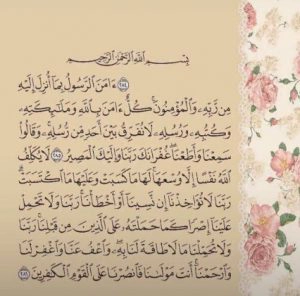 بِسْمِ اللَّهِ الرَّحْمَٰنِ الرَّحِيمِ
﴿٢٨٤﴾ ءَامَنَ الرَّسُولُ بِمَا أُنزِلَ إِلَيْهِ
مِن رَّبِّهِ وَالْمُؤْمِنُونَ كُلٌّ ءَامَنَ بِاللَّهِ وَمَلَائِكَتِهِ
وَكُتُبِهِ وَرُسُلِهِ لَا نُفَرِّقُ بَيْنَ أَحَدٍ مِّن رُّسُلِهِ وَقَالُوا
سَمِعْنَا وَأَطَعْنَا غُفْرَانَكَ رَبَّنَا وَإِلَيْكَ الْمَصِيرُ ﴿٢٨٥﴾ لَا يُكَلِّفُ
اللَّهُ نَفْسًا إِلَّا وُسْعَهَا لَهَا مَا كَسَبَتْ وَعَلَيْهَا مَا اكْتَسَبَتْ
رَبَّنَا لَا تُؤَاخِذْنَا إِن نَّسِينَا أَوْ أَخْطَأْنَا رَبَّنَا وَلَا تَحْمِلْ
عَلَيْنَا إِصْرًا كَمَا حَمَلْتَهُ عَلَى الَّذِينَ مِن قَبْلِنَا رَبَّنَا
وَلَا تُحَمِّلْنَا مَا لَا طَاقَةَ لَنَا بِهِ وَاعْفُ عَنَّا وَاغْفِرْ لَنَا
وَارْحَمْنَا أَنتَ مَوْلَانَا فَانصُرْنَا عَلَى الْقَوْمِ الْكَافِرِينَ ﴿٢٨٦﴾